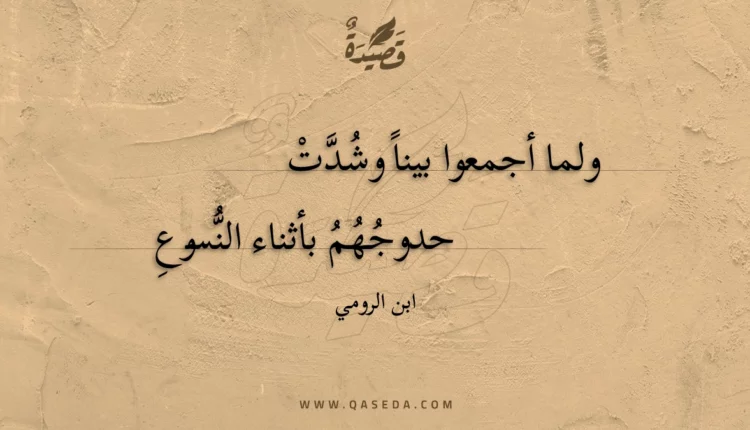 قَصِيْدَةٌ
ولما أجمعوا بيناً وشُدَّتْ
حدوجُهُمُ بأثناء النُّسوعِ
ابن الرومي
WWW.QASEDA.COM